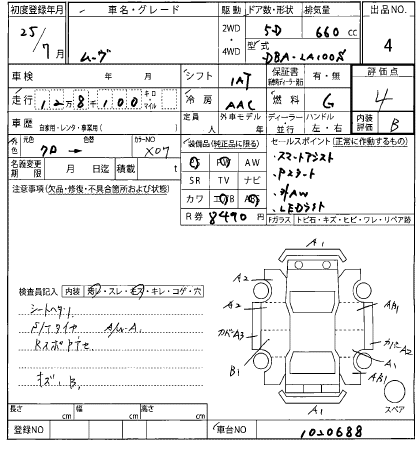 初度登録年月 車名・グレード 駆動 ドア数・形状 排気量 出品NO.
25/7月 ムーヴ 2WD・4WD 5D 660cc 4
型式 DBA-LA100S
車検 年 月 シフト 1AT 保証書 有・無 評価点
走行 12万8千100 キロ・マイル 冷房 AAC 燃料 G 4
車歴 自家用・レンタ・事業用( ) 定員 人 外車モデル 年 ディーラー・並行 ハンドル 左・右 内装評価 B
外色 元色 クロ→ 色 カラーNO X07 装備品(純正品に限る) セールスポイント(正常に作動するもの)
PS PW AW ・スマートアシスト
名義変更期限 月 日迄 積載 t SR TV ナビ ・Pスタート
注意事項(欠品・修復・不具合箇所および状態) カワ エアB ABS ・外AW
R券 8490円 ・LEDライト
Fガラス トビ石・キズ・ヒビ・ワレ・リペア跡
A1
A2
検査員記入 内装 ・スレ・ ・キレ・コゲ・穴
A2
カドA3 A2
B1 A1
キズ、B,
A1 スペア
長さ cm 幅 cm 高さ cm
登録NO 車台NO 1020688